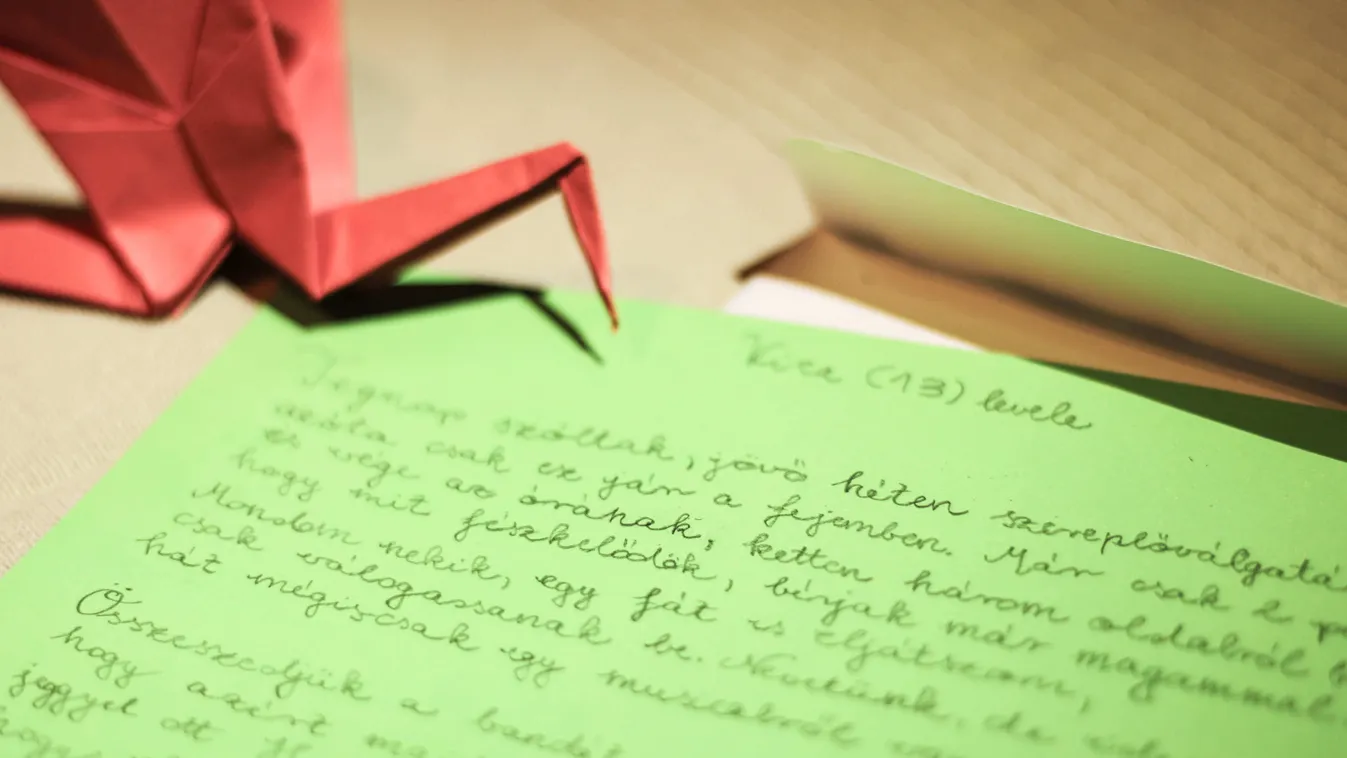 Kira (13) levele
Tegnap szóltak, jövő héten szereplőválogatá
azóta csak ez jár a fejemben. Már csak 2 p
és vége az órának, ketten három oldalról
hogy mit fészkelődök, bírjak már magammal.
Mondom nekik, egy fát is eljátszom,
csak válogassanak be. Nevetünk, de
hát mégiscsak egy musicalről
Összeszedjük a bandát
hogy azért ma
jeggyel ott